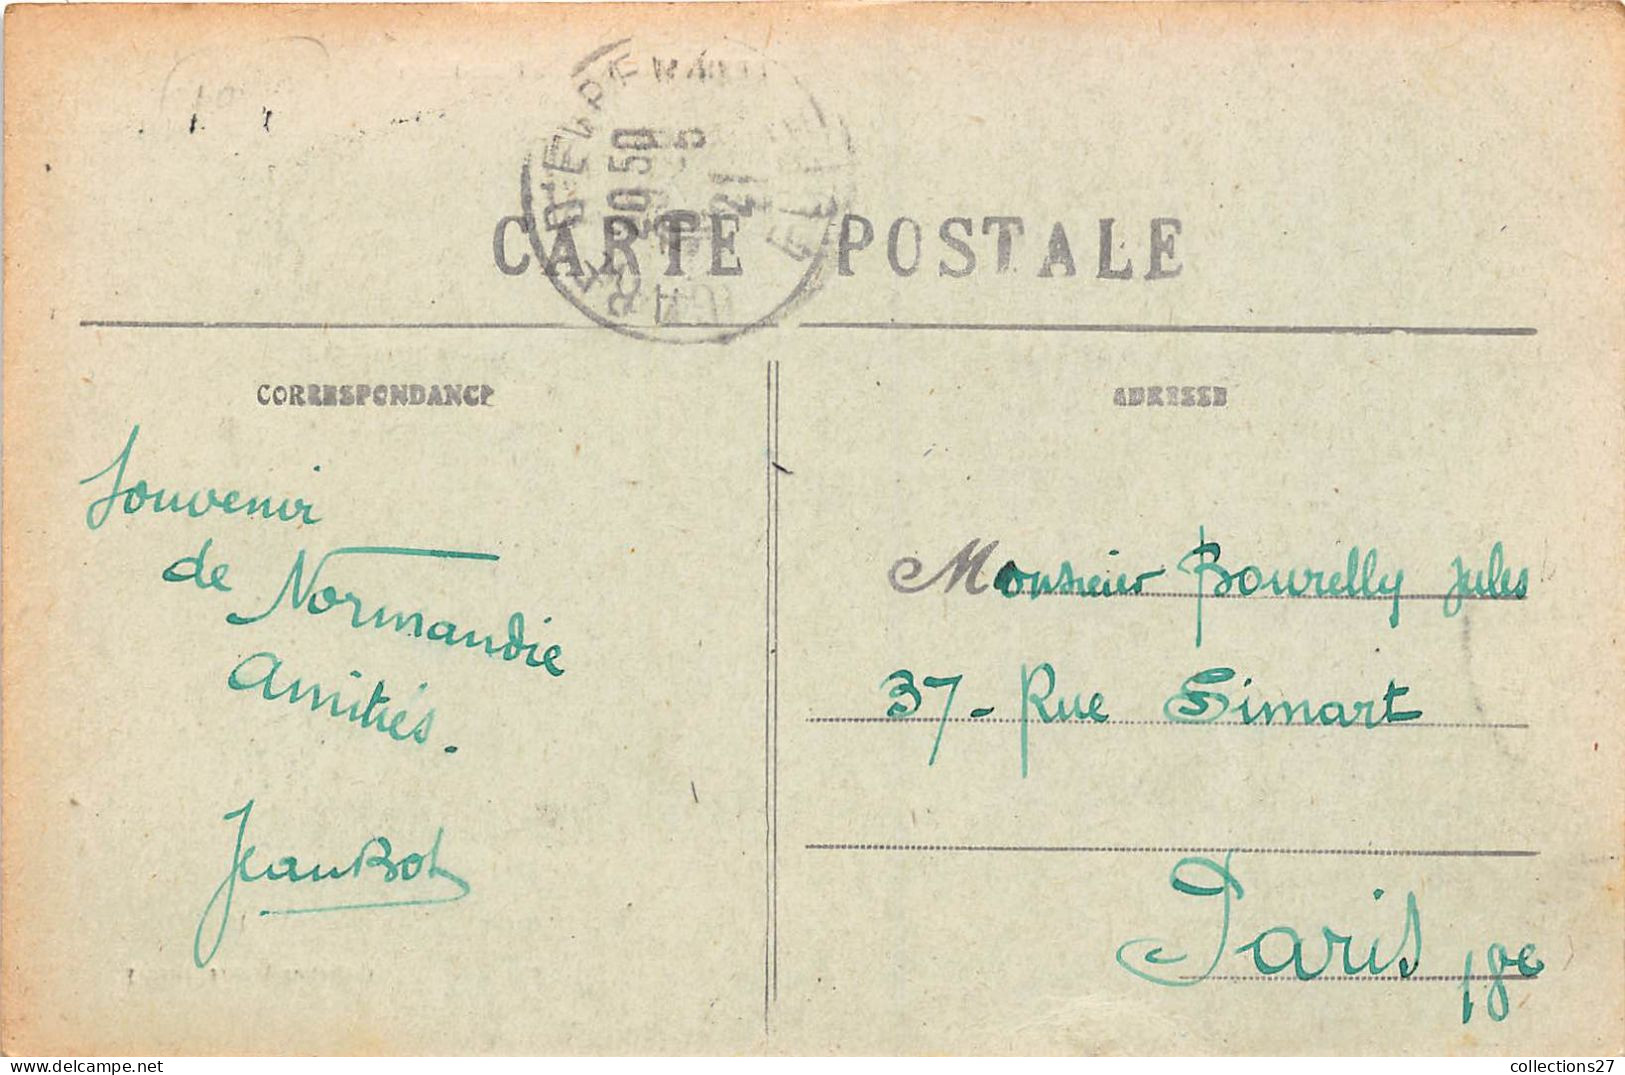 CARTE POSTALE
CORRESPONDANCE
ADRESSE
Souvenir
de Normandie
Amitiés.
Jean Bot
Monsieur Bourelly Jules
37 - Rue Simart
Paris 18e
20 50
5
21
collections27